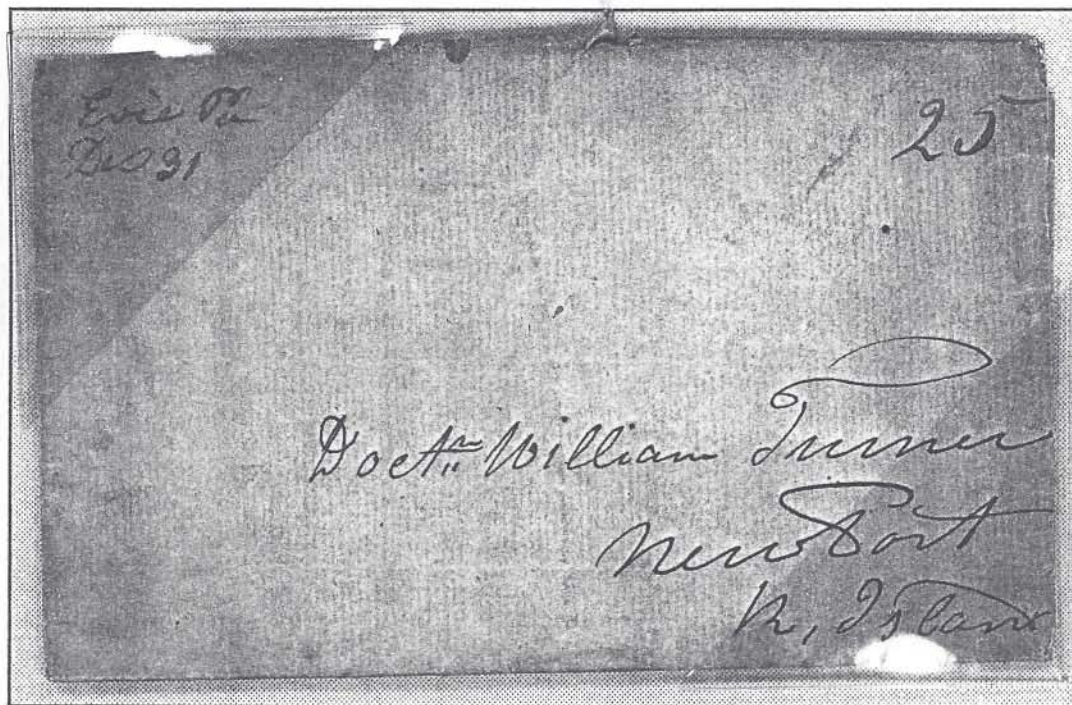 Erie Pa
Dec 31
25
Doctr William Turner
New Port
R, Island